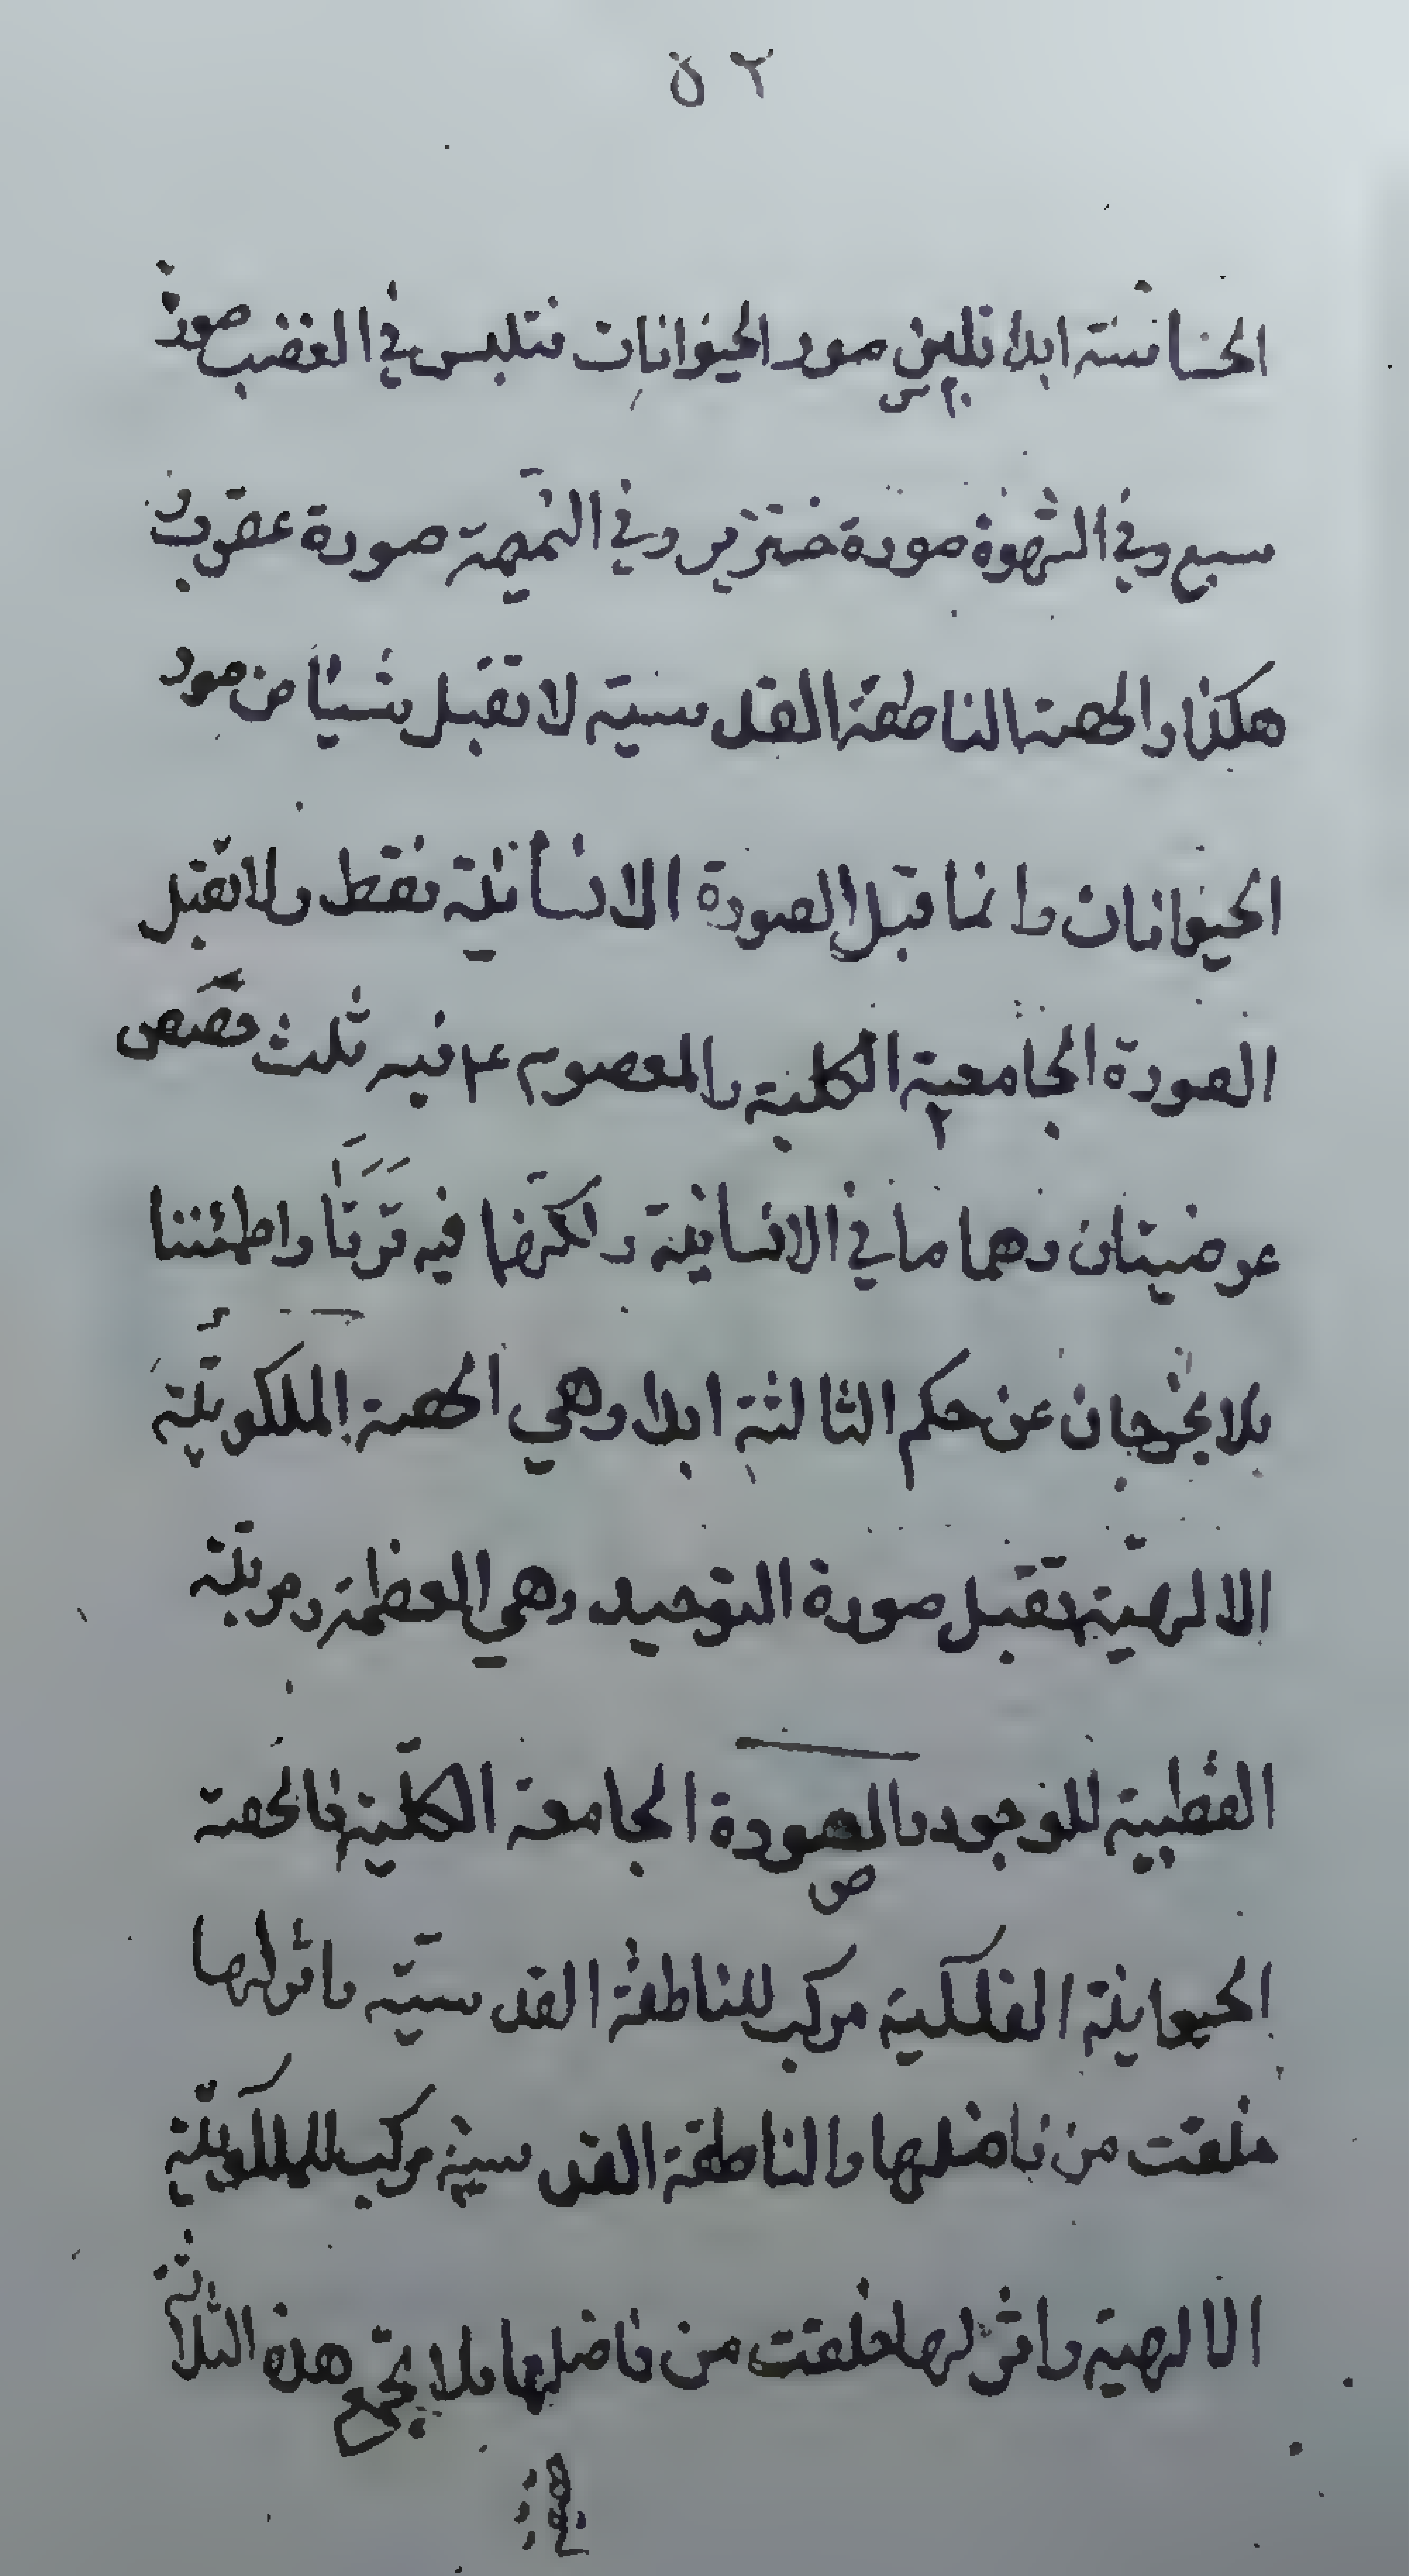 ٥٢
الخناسة ابدا تلبس صور الحيوانات فتلبس في الغضب صورة
سبع وفي الشهوة صورة خنزير وفي النميمة صورة عقرب و
هكذا والحصة الناطقة القدسية لا تقبل شيئا من صور
الحيوانات وانما تقبل الصورة الانسانية فقط ولا تقبل
الصورة الجامعية الكلية والمعصوم ع فيه ثلث حصص
عرضيتان وهما ما في الانسانية ولكنهما فيه تزكّتا واطمئنتا
بلا يخرجان عن حكم الثالثة ابدا وهي الحصة الملكوتية
الالهية تقبل صورة التوحيد وهي العظمة ومرتبة
القطبية للوجود والصورة الجامعة الكلية فالحصة
ص
الحيوانية الفلكية مركب للناطقة القدسية واثر لها
خلقت من فاضلها والناطقة القدسية مركب للملكوتية
الالهية واثر لها خلقت من فاضلها فلا يجتمع هذه الثلاثة